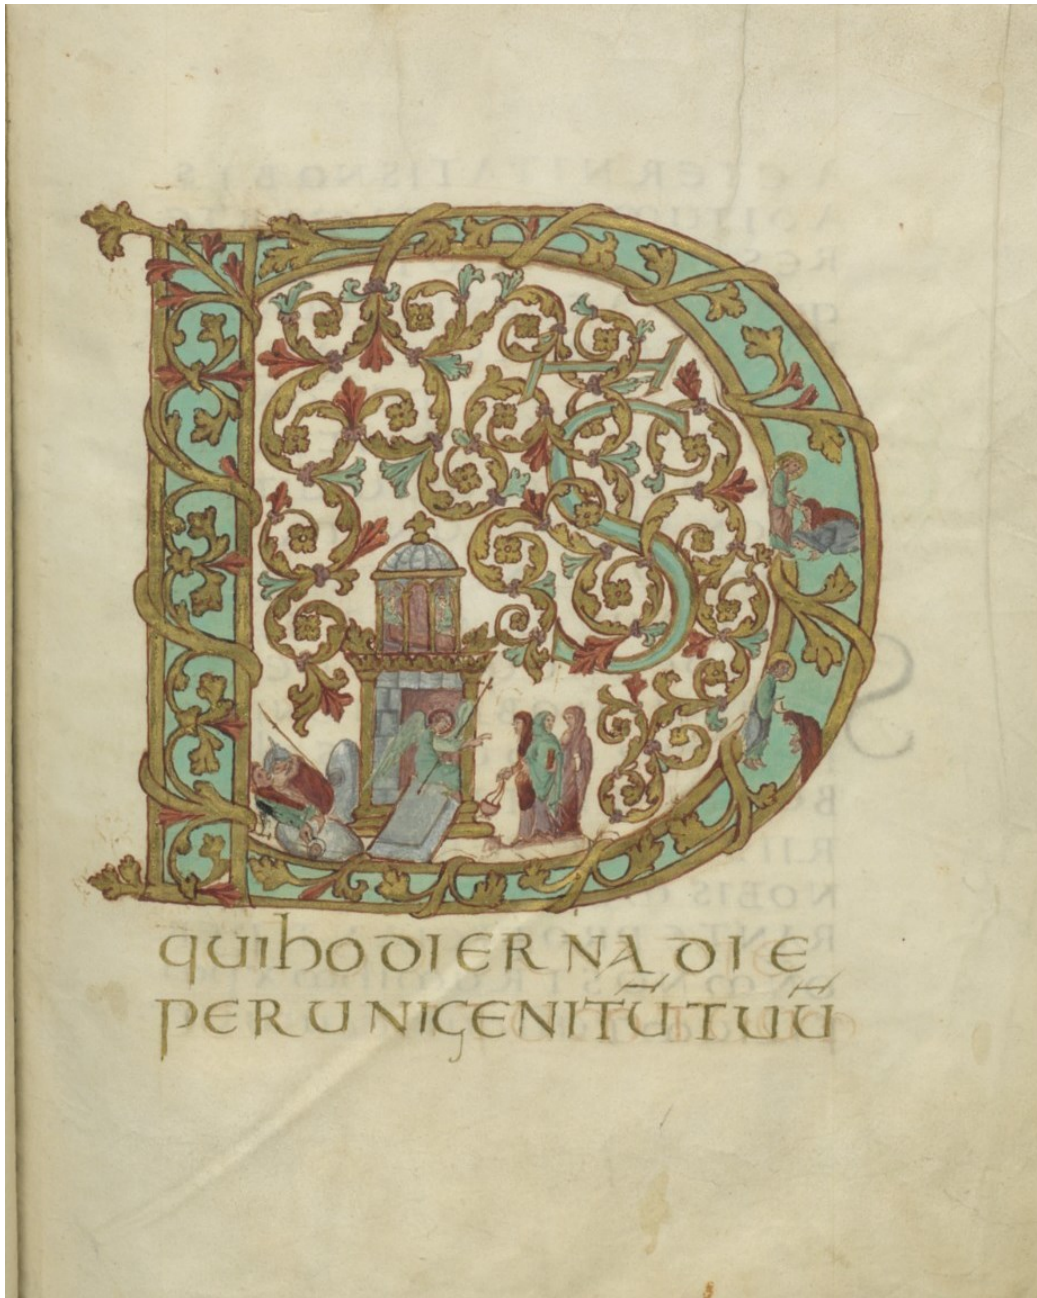 D̅S̅
quihodierna die
perunigenitū tuū